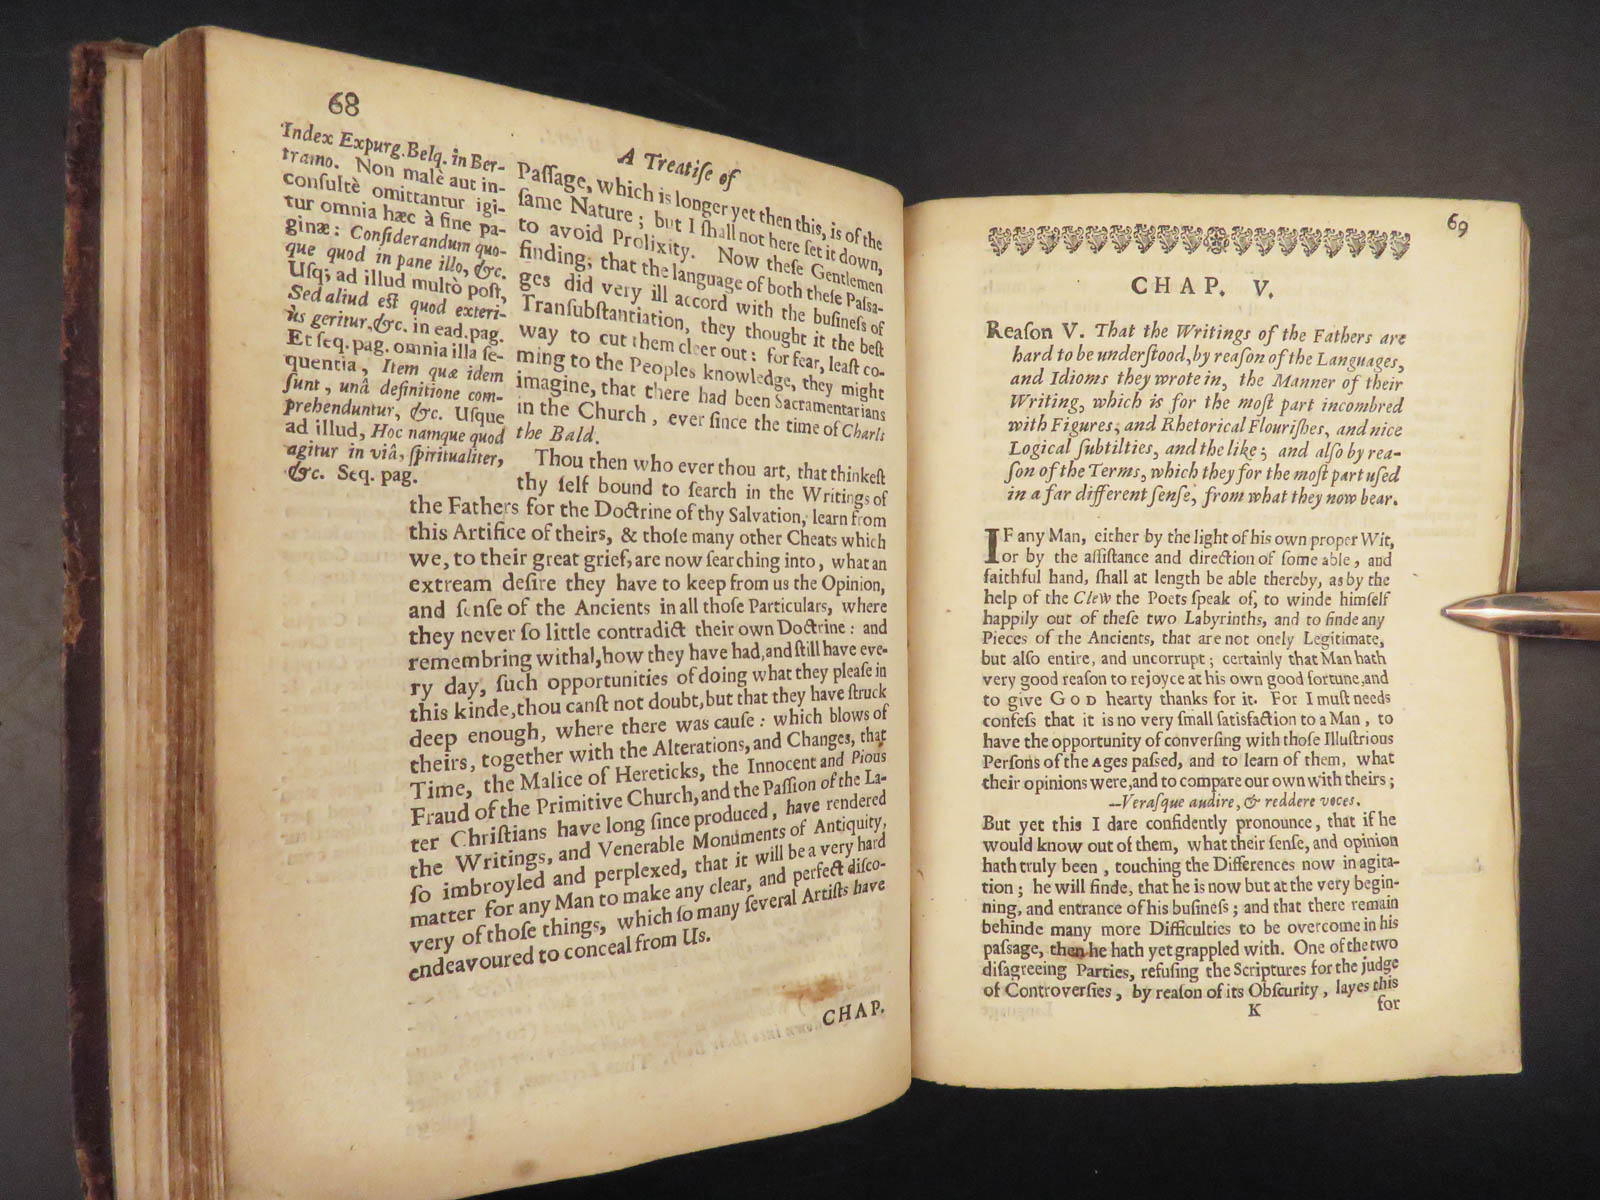 68
A Treatiſe of
Index Expurg. Belq. in Ber-
tramo. Non malè aut in-
conſultè omittantur igi-
tur omnia hæc à fine pa-
ginæ: Conſiderandum quo-
que quod in pane illo, &c.
Uſq; ad illud multò poſt,
Sed aliud eſt quod exteri-
ùs geritur, &c. in ead. pag.
Et ſeq. pag. omnia illa ſe-
quentia, Item quæ idem
ſunt, unâ definitione com-
prehenduntur, &c. Uſque
ad illud, Hoc namque quod
agitur in viâ, ſpiritualiter,
&c. Seq. pag.
Paſſage, which is longer yet then this, is of the
ſame Nature; but I ſhall not here ſet it down,
to avoid Prolixity. Now theſe Gentlemen
finding, that the language of both theſe Paſſa-
ges did very ill accord with the buſineſs of
Tranſubſtantiation, they thought it the beſt
way to cut them cleer out: for fear, leaſt co-
ming to the Peoples knowledge, they might
imagine, that there had been Sacramentarians
in the Church, ever ſince the time of Charls
the Bald.
Thou then who ever thou art, that thinkeſt
thy ſelf bound to ſearch in the Writings of
the Fathers for the Doctrine of thy Salvation, learn from
this Artifice of theirs, & thoſe many other Cheats which
we, to their great grief, are now ſearching into, what an
extream deſire they have to keep from us the Opinion,
and ſenſe of the Ancients in all thoſe Particulars, where
they never ſo little contradict their own Doctrine: and
remembring withal, how they have had, and ſtill have eve-
ry day, ſuch opportunities of doing what they pleaſe in
this kinde, thou canſt not doubt, but that they have ſtruck
deep enough, where there was cauſe: which blows of
theirs, together with the Alterations, and Changes, that
Time, the Malice of Hereticks, the Innocent and Pious
Fraud of the Primitive Church, and the Paſſion of the La-
ter Chriſtians have long ſince produced, have rendered
the Writings, and Venerable Monuments of Antiquity,
ſo imbroyled and perplexed, that it will be a very hard
matter for any Man to make any clear, and perfect diſco-
very of thoſe things, which ſo many ſeveral Artiſts have
endeavoured to conceal from Us.
CHAP.
69
CHAP. V.
Reaſon V. That the Writings of the Fathers are
hard to be underſtood, by reaſon of the Languages,
and Idioms they wrote in, the Manner of their
Writing, which is for the moſt part incombred
with Figures, and Rhetorical Flouriſhes, and nice
Logical ſubtilties, and the like; and alſo by rea-
ſon of the Terms, which they for the moſt part uſed
in a far different ſenſe, from what they now bear.
IF any Man, either by the light of his own proper Wit,
or by the aſſiſtance and direction of ſome able, and
faithful hand, ſhall at length be able thereby, as by the
help of the Clew the Poets ſpeak of, to winde himſelf
happily out of theſe two Labyrinths, and to finde any
Pieces of the Ancients, that are not onely Legitimate,
but alſo entire, and uncorrupt; certainly that Man hath
very good reaſon to rejoyce at his own good fortune, and
to give GOD hearty thanks for it. For I muſt needs
confeſs that it is no very ſmall ſatisfaction to a Man, to
have the opportunity of converſing with thoſe Illuſtrious
Perſons of the Ages paſſed, and to learn of them, what
their opinions were, and to compare our own with theirs;
--Veraſque audire, & reddere voces.
But yet this I dare confidently pronounce, that if he
would know out of them, what their ſenſe, and opinion
hath truly been, touching the Differences now in agita-
tion; he will finde, that he is now but at the very begin-
ning, and entrance of his buſineſs; and that there remain
behinde many more Difficulties to be overcome in his
paſſage, then he hath yet grappled with. One of the two
diſagreeing Parties, refuſing the Scriptures for the judge
of Controverſies, by reaſon of its Obſcurity, layes this
K for